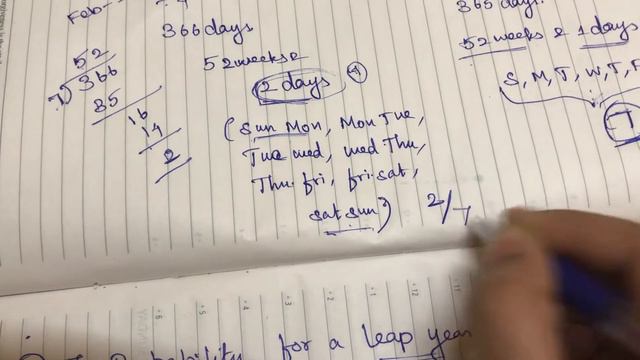 Feb
366 days
52 weeks &
2 days
52
7) 366
35
16
14
2
(Sun Mon, Mon Tue,
Tue wed, wed Thu,
Thu fri, fri sat,
sat sun)
2/7
365 days.
52 weeks & 1 days
S, M, T, W, T, F
for a leap year